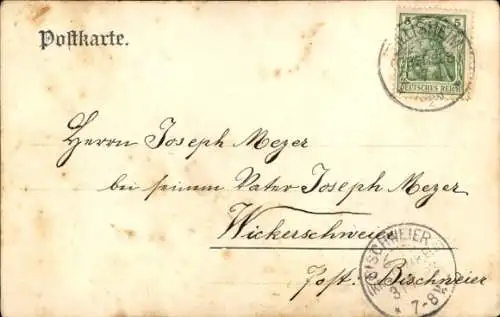 Postkarte.
5 5
DEUTSCHES REICH
Herrn Joseph Mezer
bei seinem Vater Joseph Mezer
Wickerschweier
Post: Bischweier
BISCHWEIER
7-8